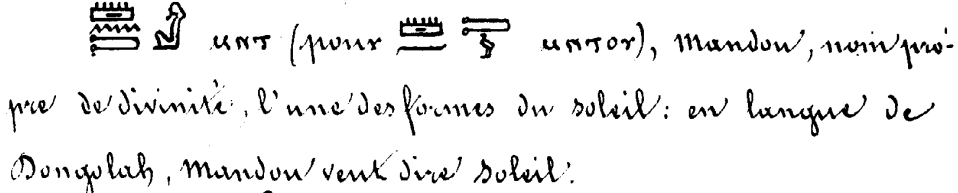 𓏠𓈖𓍿𓀭 ⲙⲛⲧ (pour 𓏠𓈖 𓍿𓅱 ⲙⲛⲧⲟⲩ), Mandou, nom pro-
pre de divinité, l'une des formes du soleil: en langue de
Dongolah, Mandou veut dire soleil.